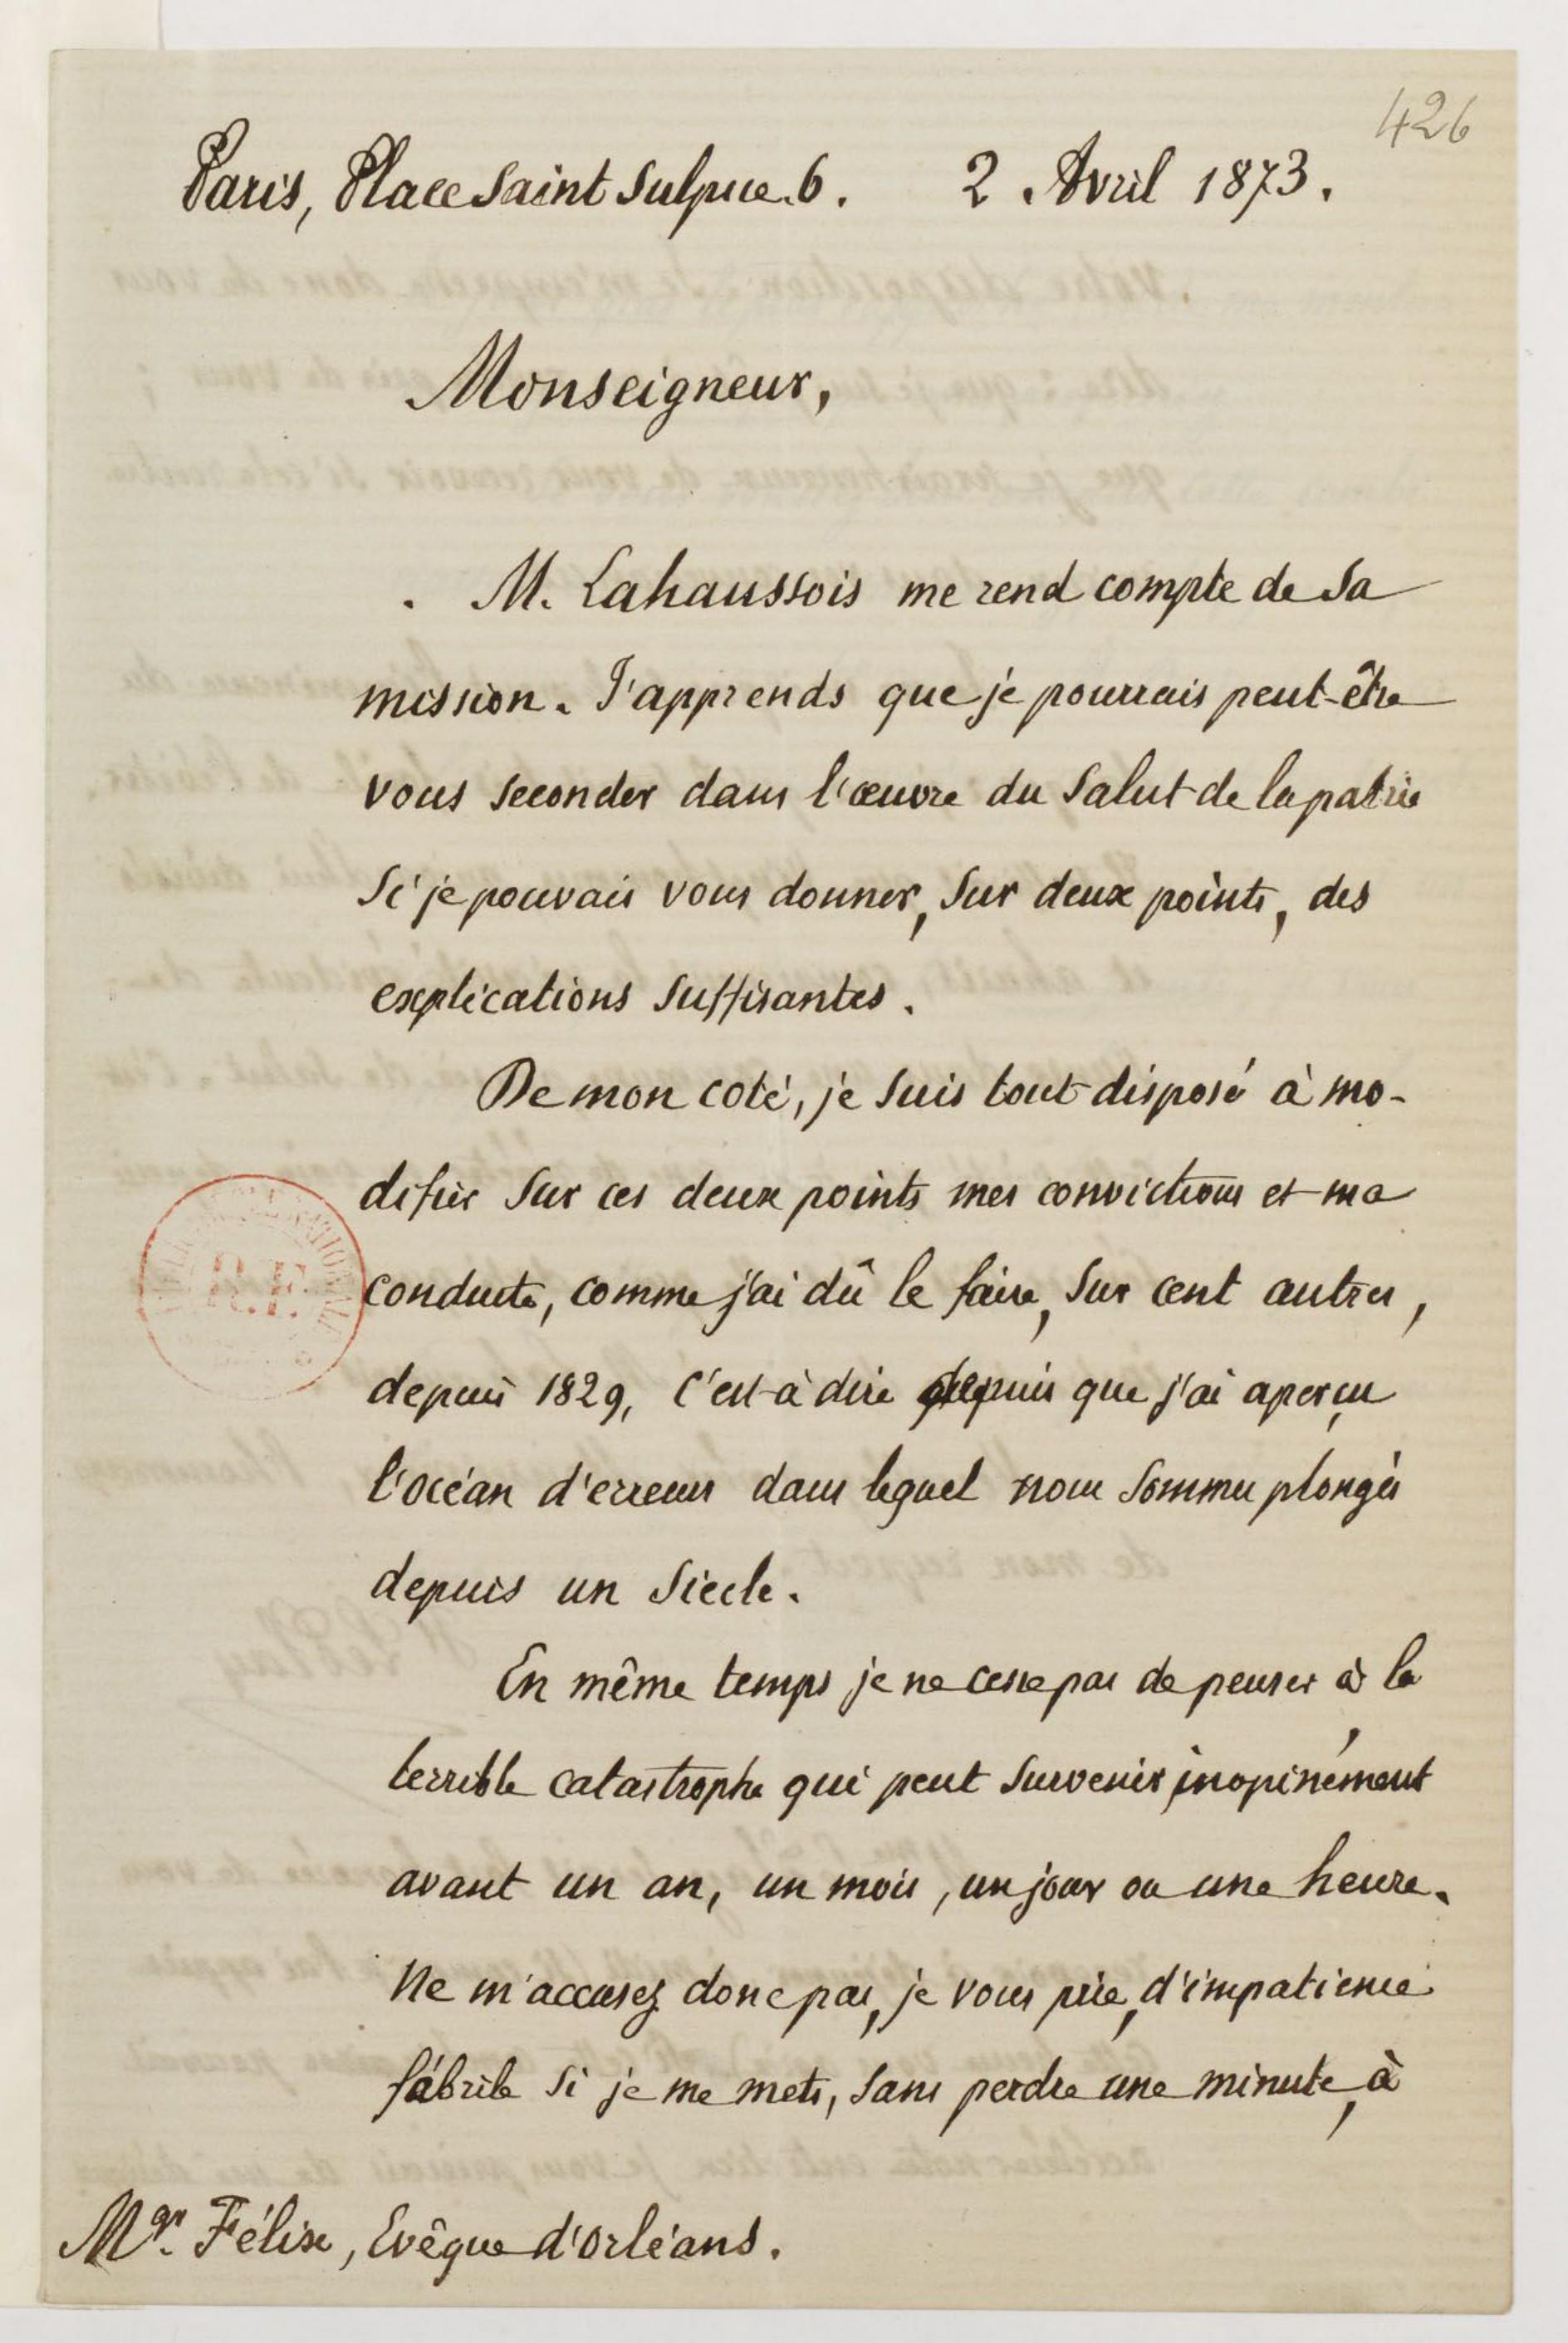 426
Paris, Place Saint Sulpice. 6. 2. Avril 1873.
Monseigneur,
M. Lahaussois me rend compte de sa
mission. J'apprends que je pourrais peut-être
vous seconder dans l'œuvre du salut de la patrie
si je pouvais vous donner, sur deux points, des
explications suffisantes.
De mon coté, je suis tout disposé à mo-
difier sur ces deux points mes convictions et ma
conduite, comme j'ai dû le faire, sur cent autres,
depuis 1829, c'est-à dire depuis que j'ai aperçu
l'océan d'erreurs dans lequel nous sommes plongés
depuis un siecle.
En même temps je ne cesse pas de penser à la
terrible catastrophe qui peut survenir, inopinément
avant un an, un mois, un jour ou une heure.
Ne m'accusez donc pas, je vous prie, d'impatience
fébrile si je me mets, sans perdre une minute, à
Mgr. Félix, Evêque d'Orléans.
R.F.